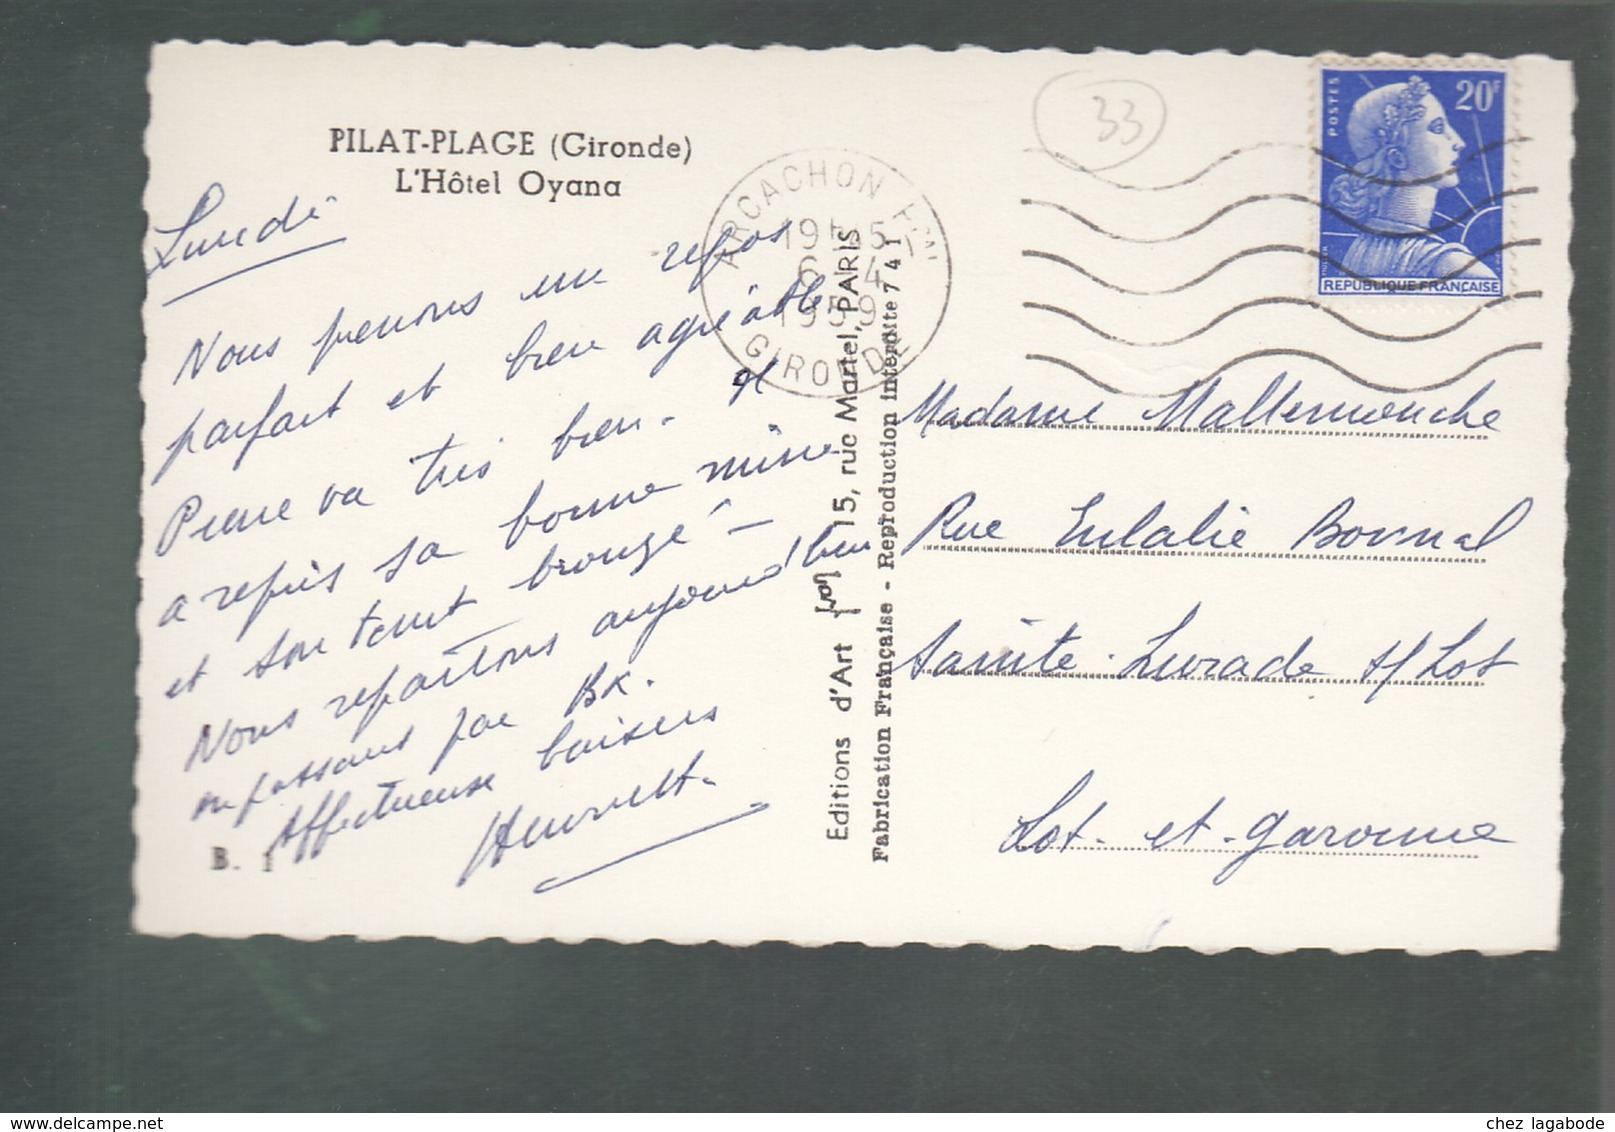 PILAT-PLAGE (Gironde)
L'Hôtel Oyana
Lundi
Nous prenons un repos
parfait et bien agréable
Pierre va très bien. Il
a repris sa bonne mine
et son teint bronzé -
Nous repartons aujourd'hui
en passant par BX.
Affectueux baisers
Henriette
B. 1
Editions d'Art 15, rue Martel, PARIS
Fabrication Française - Reproduction interdite 741
33
ARCACHON
19
6-4
1959
GIRONDE
POSTES
20F
REPUBLIQUE FRANÇAISE
Madame Mallemouche
Rue Eulalie Bormal
Sainte-Livrade s/Lot
Lot-et-Garonne
chez lagabode